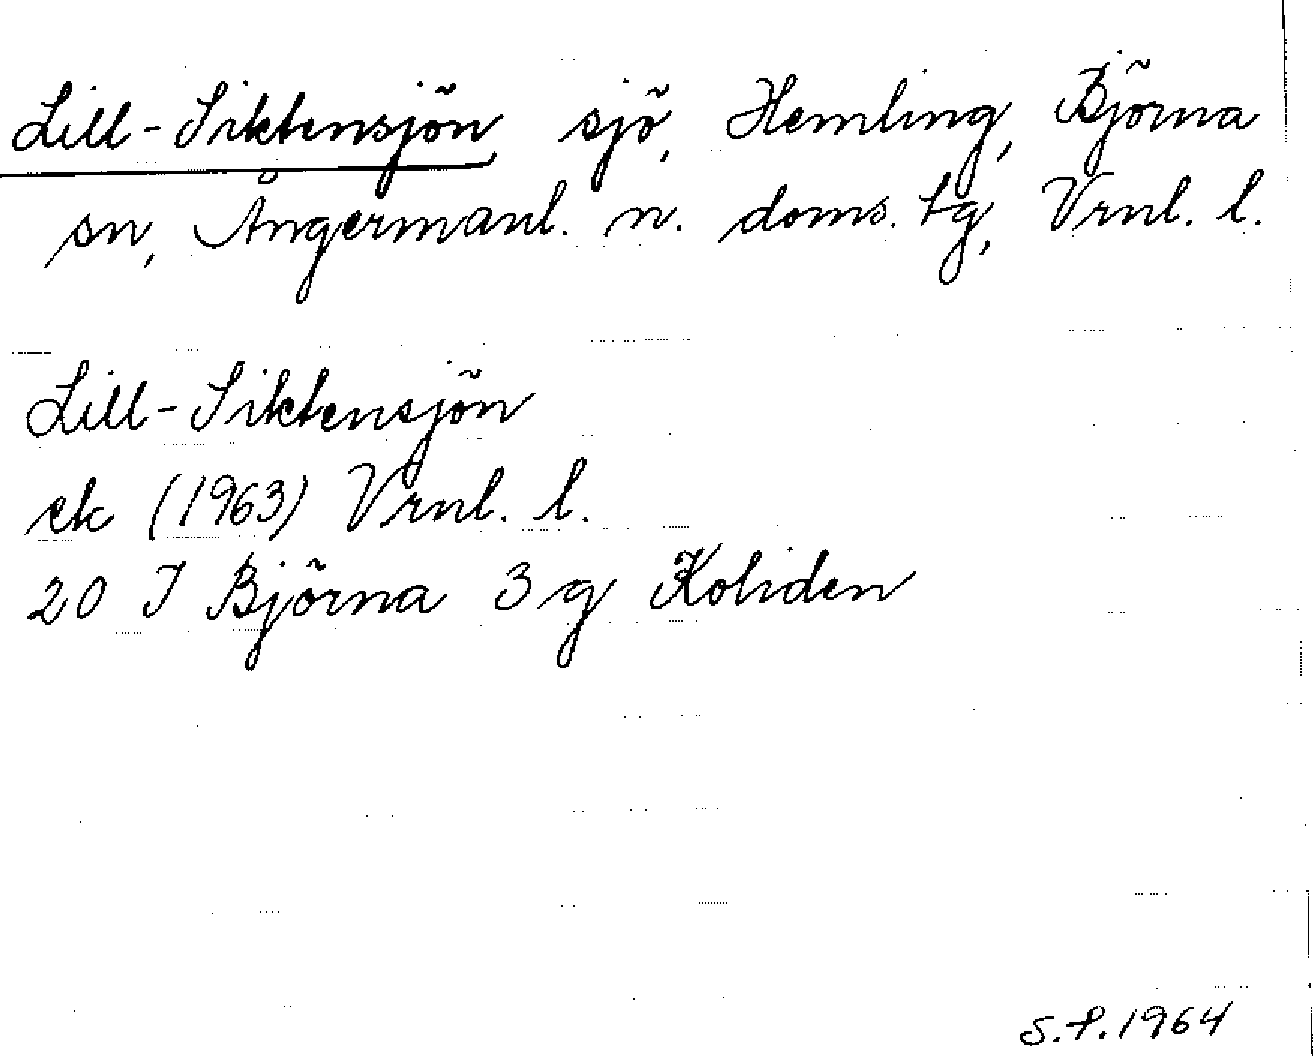 Lill-Siktensjön sjö, Hemling, Björna
sn, Ångermanl. n. doms. tg, Vrnl. l.
Lill-Siktensjön
ek (1963) Vrnl. l.
20 I Björna 3 g Koliden
S.P.1964